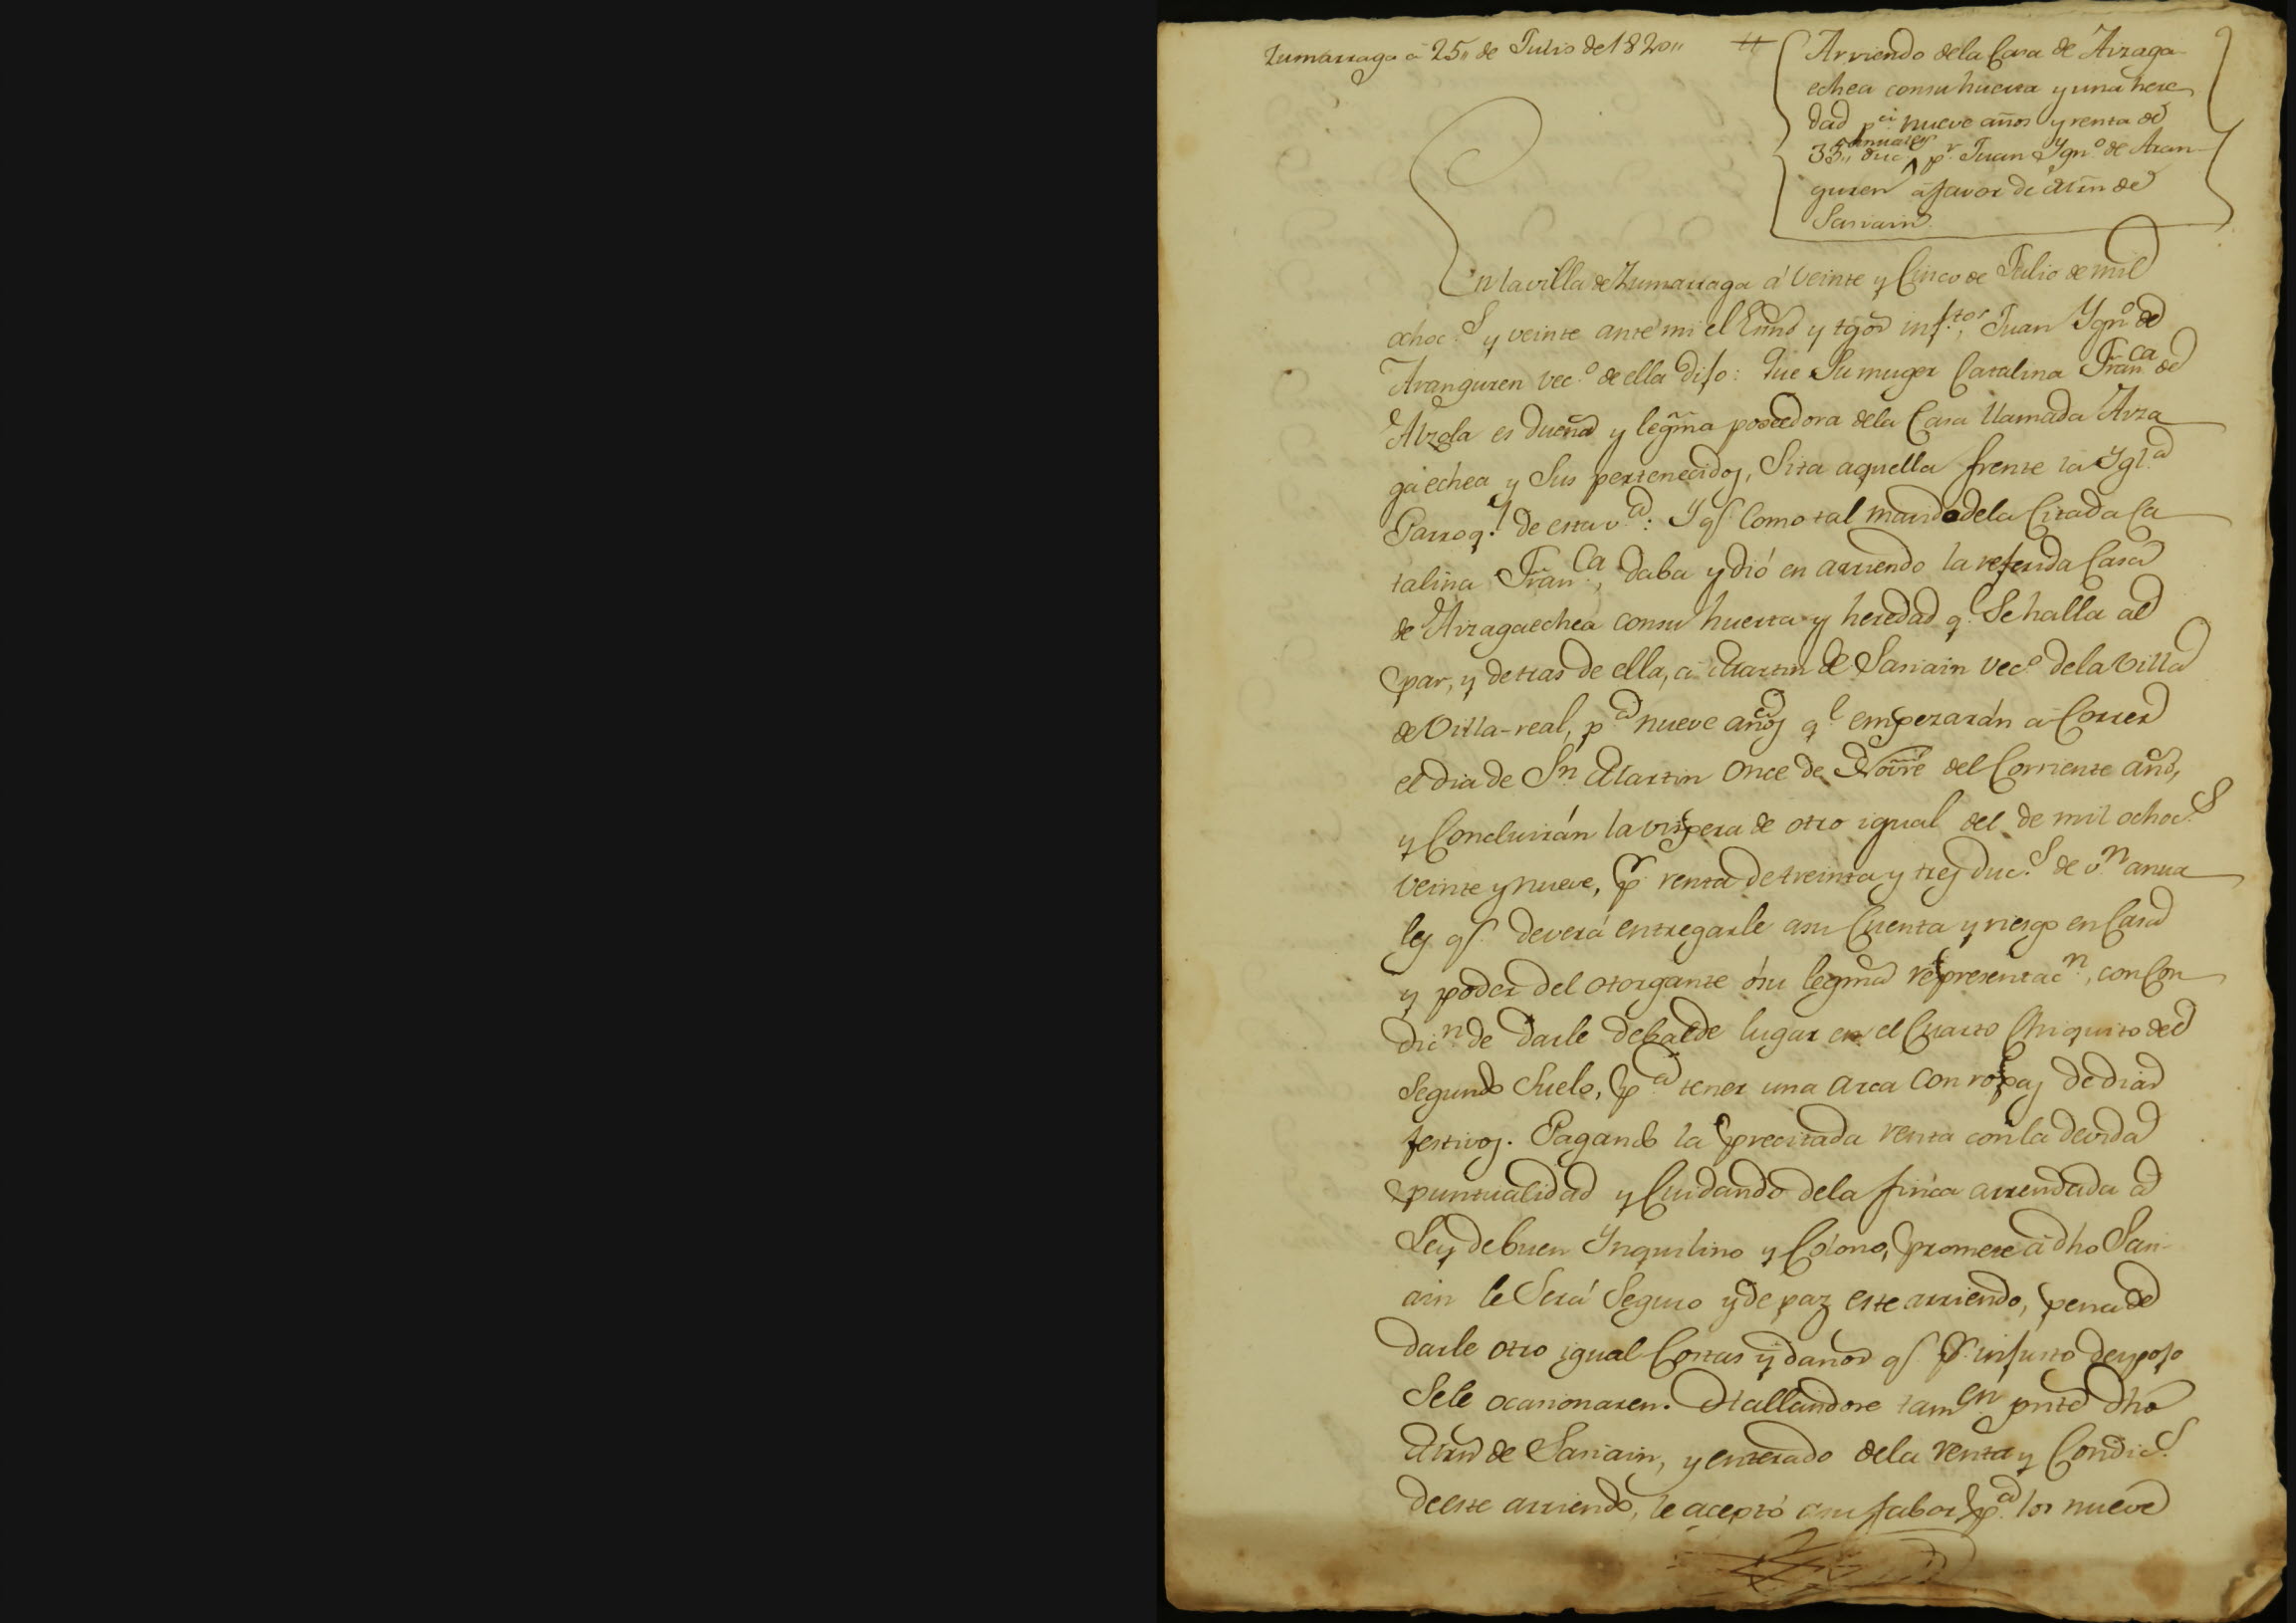 Zumarraga á 25,, de Julio de 1820,,
Arriendo dela Casa de Arizaga-
echea consu huerta y una here
dad p.ª nueve años y renta de
33,, duc.s anuales p.r Juan Ygn.º de Aran-
guren á favor de Mrn de
Sasiain.
En la villa de Zumarraga á veinte y Cinco de Julio de mil
ochoc.s y veinte ante mi el Essnō y tgos infr̄tos, Juan Ygn.º de
Aranguren vec.º de ella dijo: Que Su muger Catalina Fran.ca de
Alzola es dueña y legm̄a poseedora dela Casa llamada Ariza
gaechea y Sus pertenecidos, Sita aquella frente la Ygl.ª
Parroq.l de esta v.ª: Y q.e Como tal marido dela Citada Ca
talina Fran.ca, daba y dió en arriendo la referida Casa
de Arizagaechea consu huerta y heredad q.e Se halla al
par, y detras de ella, á Martin de Sasiain vec.º dela Villa
de Villa-real, p.ª nueve años q.e empezarán á Correr
el dia de S.n Martin Once de Novr̄e del Corriente año,
y Concluirán la vispera de otro igual del de mil ochoc.s
veinte y nueve, p.r renta de treinta y tres duc.s de v.n anua
les q.e deverá entregarle asu Cuenta y riesgo en Casa
y poder del otorgante ósu legm̄a representac.n, con Con
dic.n de darle debalde lugar en el Cuarto Chiquito del
Segundo Suelo, p.ª tener una arca con ropas de dias
festivos. Pagando la precitada renta con la devida
puntualidad y Cuidando dela finca arrendada á
Ley de buen Ynquilino y Colono, promete á dho Sasi-
ain le Será Seguro y de paz este arriendo, pena de
darle otro igual Costas y daños q.e p.r injusto despojo
Sele ocasionaren. Hallandose tamb.en pnte dho
Mrn de Sasiain, y enterado dela renta y Condic.s
de este arriendo, le aceptó asu fabor p.ª los nueve